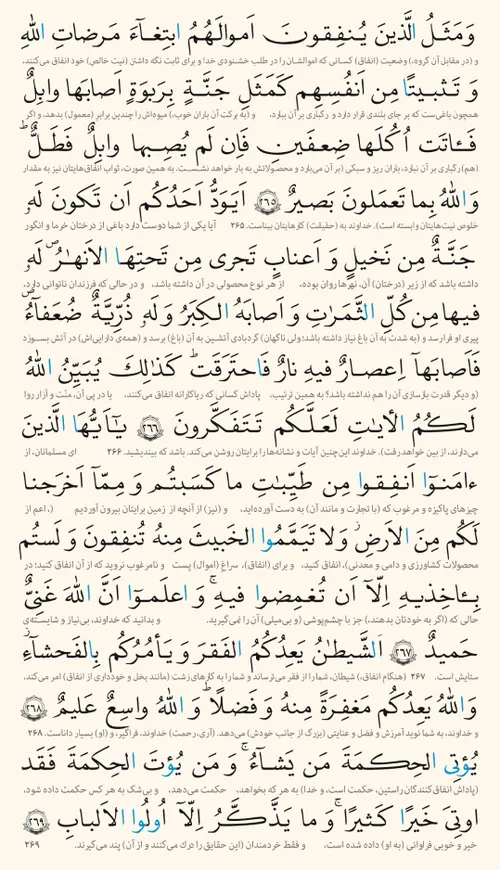 وَمَثَلُ الَّذينَ يُنفِقونَ اَموالَهُمُ ابتِغـآءَ مَرضاتِ اللهِ
و (در مقابل آن گروه،) وضعیت (انفاق) کسانی که اموالشان را در طلب خشنودی خدا و برای ثابت نگه داشتن (نیت خالص) خود انفاق می‌کنند،
وَ تَثبيتًا مِن اَنفُسِهِم كَمَثَلِ جَنَّةٍ بِرَبوَةٍ اَصابَها وابِلٌ
همچون باغی‌ست که بر جای بلندی قرار دارد و رگباری بر آن ببارد، و (به برکت آن باران خوب،) میوه‌اش را چندین برابر (معمول) بدهد، و اگر
فَـٔاتَت اُكُلَها ضِعفَينِ فَاِن لَم يُصِبها وابِلٌ فَطَلٌّ
(هم) رگباری بر آن نبارد، باران ریز و سبکی (بر آن می‌بارد و محصولاتش به بار خواهد نشست. به همین صورت، ثواب انفاق‌هایتان نیز به مقدار
وَ اللهُ بِما تَعمَلونَ بَصيرٌ ٢٦٥ اَيَوَدُّ اَحَدُكُم اَن تَكونَ لَهٗ
خلوص نیت‌هایتان وابسته است). خداوند به (حقیقت) کارهایتان بیناست. ۲۶۵ آیا یکی از شما دوست دارد باغی از درختان خرما و انگور
جَنَّةٌ مِن نَخيلٍ وَ اَعنابٍ تَجرى مِن تَحتِهَا الاَنهٰرُ لَهٗ
داشته باشد که از زیر (درختان) آن، نهرها روان بوده، از هر نوع محصولی در آن داشته باشد، و در حالی که فرزندان ناتوانی دارد،
فيها مِن كُلِّ الثَّمَرٰتِ وَ اَصابَهُ الكِبَرُ وَ لَهٗ ذُرِّيَّةٌ ضُعَفآءُ
پیری او فرا رسد و (به شدت به آن باغ نیاز داشته باشد؛ ولی ناگهان) گردبادی آتشین به آن (باغ) برسد و (همه‌ی دارایی‌اش) در آتش بسوزد
فَاَصابَهآ اِعصارٌ فيهِ نارٌ فَاحتَرَقَت كَذٰلِكَ يُبَيِّنُ اللهُ
(و دیگر قدرت بازسازی آن را هم نداشته باشد؟ به همین ترتیب، پاداش کسانی که ریاکارانه انفاق می‌کنند، یا در پی آن، منّت و آزار روا
لَكُمُ الأيٰتِ لَعَلَّكُم تَتَفَكَّرونَ ٢٦٦ يـٰٓاَيُّهَا الَّذينَ
می‌دارند، از بین خواهد رفت). خداوند این‌چنین آیات و نشانه‌ها را برایتان روشن می‌کند. باشد که بیندیشید. ۲۶۶ ای مسلمانان، از
ءامَنوٓا اَنفِقوا مِن طَيِّبٰتِ ما كَسَبتُم وَ مِمّآ اَخرَجنا
چیزهای پاکیزه و مرغوب که (با تجارت و مانند آن) به دست آورده‌اید، و (نیز) از آنچه از زمین برایتان بیرون آوردیم (، اعم از
لَكُم مِنَ الاَرضِ وَ لا تَيَمَّمُوا الخَبيثَ مِنهُ تُنفِقونَ وَ لَستُم
محصولات کشاورزی و دامی و معدنی)، انفاق کنید، و برای (انفاق)، سراغ (اموال) پست و نامرغوب نروید که از آن انفاق کنید؛ در
بِـٔاخِذيهِ اِلّآ اَن تُغمِضوا فيهِ وَ اعلَموٓا اَنَّ اللهَ غَنِىٌّ
حالی که (اگر به خودتان بدهند،) جز با چشم‌پوشی (و بی‌میلی) آن را نمی‌گیرید. و بدانید که خداوند، بی‌نیاز و شایسته‌ی
حَميدٌ ٢٦٧ اَلشَّيطٰنُ يَعِدُكُمُ الفَقرَ وَ يَأمُرُكُم بِالفَحشآءِ
ستایش است. ۲۶۷ (هنگام انفاق،) شیطان، شما را از فقر می‌ترساند و شما را به کارهای زشت (مانند بخل و خودداری از انفاق) امر می‌کند،
وَ اللهُ يَعِدُكُم مَغفِرَةً مِنهُ وَ فَضلًا وَ اللهُ واسِعٌ عَليمٌ ٢٦٨
و خداوند، به شما نوید آمرزش و فضل و عنایتی (بزرگ از جانب خودش) می‌دهد. (آری، رحمت) خداوند، فراگیر، و (او) بسیار داناست. ۲۶۸
يُؤتِى الحِكمَةَ مَن يَشآءُ وَ مَن يُؤتَ الحِكمَةَ فَقَد
(پاداش انفاق‌کنندگان راستین، حکمت است، و خدا) به هر که بخواهد، حکمت می‌دهد، و بی‌شک به هر کس حکمت داده شود،
اوتِىَ خَيرًا كَثيرًا وَ ما يَذَّكَّرُ اِلّآ اُولُوا الاَلبابِ ٢٦٩
خیر و خوبی فراوانی (به او) داده شده است، و فقط خردمندان (این حقایق را درک می‌کنند و از آن) پند می‌گیرند. ۲۶۹